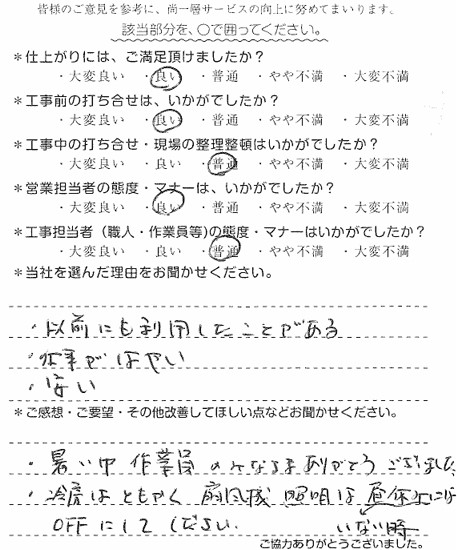 皆様のご意見を参考に、尚一層サービスの向上に努めてまいります。
該当部分を、○で囲ってください。
*仕上がりには、ご満足頂けましたか？
・大変良い ・良い ・普通 ・やや不満 ・大変不満
*工事前の打ち合せは、いかがでしたか？
・大変良い ・良い ・普通 ・やや不満 ・大変不満
*工事中の打ち合せ・現場の整理整頓はいかがでしたか？
・大変良い ・良い ・普通 ・やや不満 ・大変不満
*営業担当者の態度・マナーは、いかがでしたか？
・大変良い ・良い ・普通 ・やや不満 ・大変不満
*工事担当者（職人・作業員等)の態度・マナーはいかがでしたか？
・大変良い ・良い ・普通 ・やや不満 ・大変不満
*当社を選んだ理由をお聞かせください。
・以前にも利用したことがある
・仕事がはやい
・安い
*ご感想・ご要望・その他改善してほしい点などお聞かせください。
・暑い中 作業員のみなさまありがとうございました
・冷房はともかく 扇風機 照明は昼休みには
OFFにしてください
いない時
ご協力ありがとうございました。